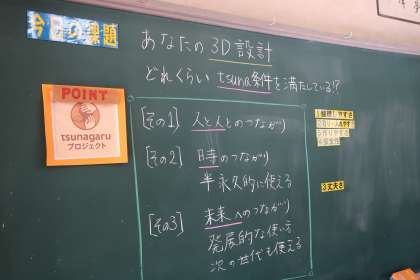 今日の課題
あなたの3D設計
どれくらいtsuna条件を満たしている!?
POINT
tsunagaru
プロジェクト
[その1] 人と人とのつながり
[その2] 時のつながり
半永久的に使える
[その3] 未来へのつながり
発展的な使い方
次の世代も使える
3丈夫さ